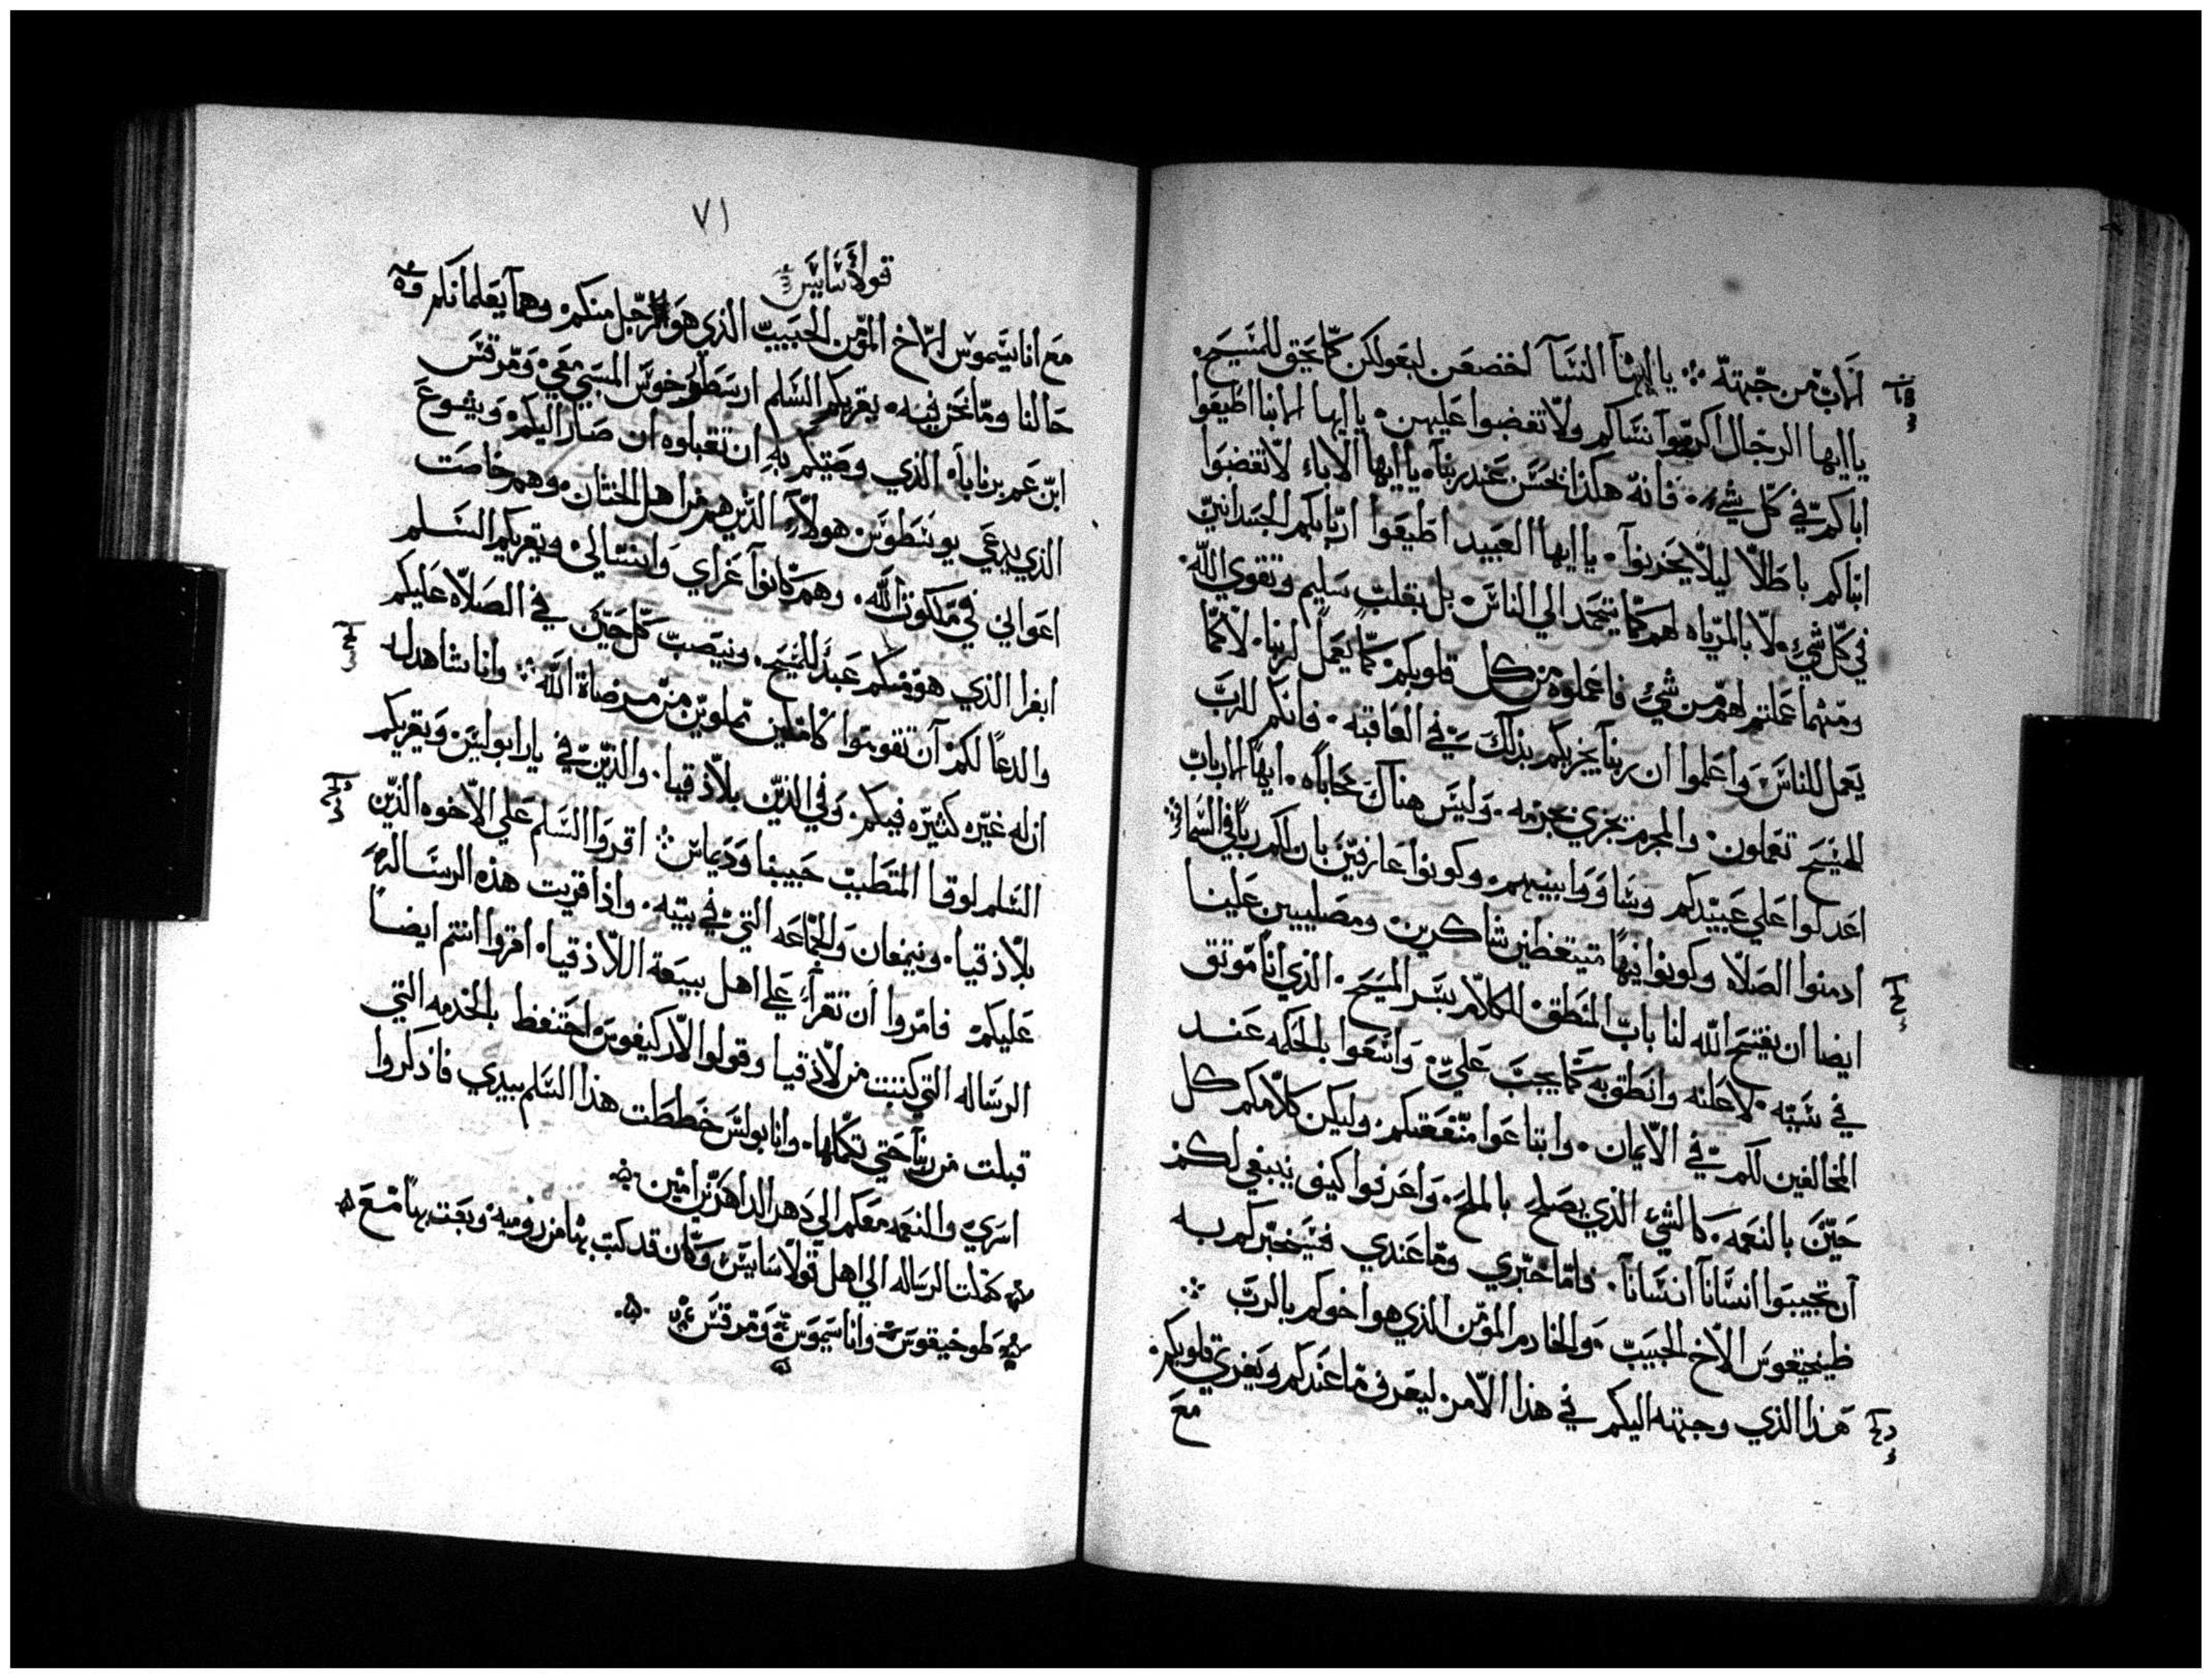 الاب من جهته ۞ يا ايها النسآ اخضعن لبعولكن كما يحق للمسيح.
يا ايها الرجال اكرموا نساكم ولا تغضبوا عليهن. يا ايها الابنا اطيعوا
اباكم في كل شيء. فانه هكذا يحسن عند ربنا. يا ايها الاباء لا تغضبوا
ابناكم باطلا ليلا يحزنوا. يا ايها العبيد اطيعوا اربابكم الجسدانيين
في كل شيء. لا بالمرياه لهم كما يتحمد الي الناس. بل بقلب سليم وتقوي الله.
ومهما عملتم لهم من شيء فاعملوه من كل قلوبكم كما يعمل لربنا. لا كما
يعمل للناس واعلموا ان ربنا يجزيكم بذلك في العاقبه. فانكم للرب
المسيح تعملون. والمجرم يجزي بجرمه. وليس هناك محاباه. ايها الارباب
اعدلوا علي عبيدكم وساووا بينهم. وكونوا عارفين بان لكم ربا في السما
ادمنوا الصلاه وكونوا فيها متيقظين شاكرين ومصليين علينا
ايضا ان يفتح الله لنا باب المنطق للكلام بسر المسيح. الذي انا موثق
في سببه لاعلنه وانطق به كما يجب علي. واسعوا بالحكمه عند
المخالفين لكم في الايمان. وابتاعوا منفعتكم. وليكن كلامكم كل
حين بالنعمه. كالشي الذي يصلح بالملح. واعرفوا كيف ينبغي لكم
ان تجيبوا انسانا انسانا. فاما خبري وما عندي فسيخبركم به
طيخيقوس الاخ الحبيب. والخادم المؤمن الذي هو اخوكم بالرب ۞
هذا الذي وجهته اليكم في هذا الامر ليعرف ما عندكم ويعزي قلوبكم.
مع
٧١
قولاسايس
مع اناسيموس الاخ المؤمن الحبيب الذي هو الرجل منكم وهما يعلمانكم
حالنا وما نحن فيه. يقريكم السلم ارسطرخوس المسبي معي. ومرقس
ابن عم برنابا. الذي وصيتكم به ان تقبلوه ان صار اليكم. ويشوع
الذي يدعي يوسطوس هولاء الذين هم من اهل الختان. وهم خاصت
اعواني في ملكوت الله. وهم كانوا عزاي وانسي لي. ويقريكم السلم
ابفرا الذي هو منكم عبد للمسيح. ونيصب كل حين في الصلاه عليكم
والدعا لكم ان تقوموا كاملين مملوين من مرضاة الله ۞ وانا شاهد له
ان له غيره كثيره فيكم. وفي الذين بلاذقيا. والذين في يارابوليس ويقريكم
السلم لوقا المتطبب حبيبنا وديماس ۞ اقروا السلم علي الاخوه الذين
بلاذقيا. ونيمفان والجماعه التي في بيته. واذا قريت هذه الرساله
عليكم فامروا ان تقرأ علي اهل بيعة اللاذقيا. اقروا انتم ايضا
الرساله التي كتبت من لاذقيا وقولوا لارkيفوس احتفظ بالخدمه التي
قبلت من ربنا حتي تكملها. وانا بولس خططت هذا السلم بيدي فاذكروا
اسري والنعمه معكم الي دهر الداهرين امين.
كملت الرساله الي اهل قولاسايس وكان قد كتب بها من روميه. وبعث بها مع
طوخيقوس واناسيموس ومرقس